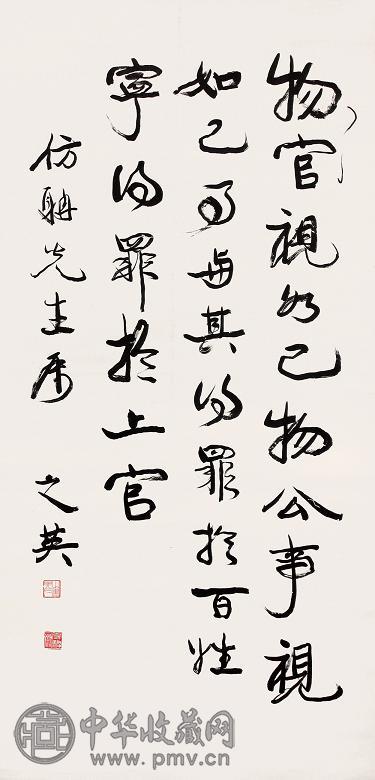 物官視如己物公事視
如己事與其得罪於百姓
寧得罪於上官
仿聃先生属 文英
中华收藏网
www.pmv.cn